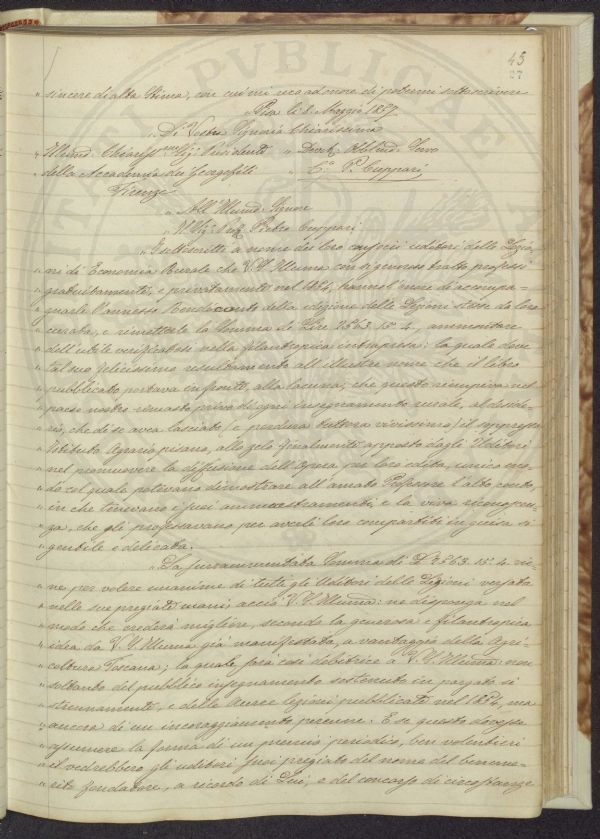 45
27
„ sincere di alta stima, con cui mi reco ad onore di potermi sottoscrivere
„ Pisa li 2. Maggio 1857
„ Di Vostra Signoria Chiarissima
„ Illmo: Chiariss: Sig: Presidente „ Devot: Obblmo: Servo
„ della Accademia dei Georgofili „ C: P. Cuppari
Firenze
„ All' Illmo: Signore
„ Il Sig: Prof. Pietro Cuppari
„ I sottoscritti a nome dei loro consocii uditori delle Lezio
„ ni di Economia Rurale che V. S. Illma: con signoroso tratto professò
„ gratuitamente, e privatamente nel 1854, hanno l'onore di accompa-
„ gnarle l'annesso Rendiconto della edizione delle Lezioni stesse da loro
„ curata, e rimetterle la somma di Lire 2563. 15. 4., ammontare
„ dell'utile verificatosi nella filantropica intrapresa: la quale deve
„ tal suo felicissimo resultamento all'illustre nome che il libro
„ pubblicato portava in fronte, alla lacuna, che questo riempiva nel
„ paese nostro rimasto privo di ogni insegnamento rurale, al deside-
„ rio, che di se avea lasciato (e perdura tuttora vivissimo) il soppresso
„ Istituto Agrario pisano, allo zelo finalmente apposto dagli Uditori
„ nel promuovere la diffusione dell'Opera per loro edita, unico mo-
„ do col quale potevano dimostrare all'amato Professore l'alto conto,
„ in che tenevano i suoi ammaestramenti, e la viva riconoscen-
„ za, che gli professavano per averli loro compartiti in guisa sì
„ gentile e delicata.
„ La surrammentata somma di L. 2563. 15. 4. vie-
„ ne per volere unanime di tutti gli Uditori delle Lezioni versata
„ nelle sue pregiate mani, acciò V. S. Illma: ne disponga nel
„ modo che crederà migliore, secondo la generosa e filantropica
„ idea da V. S. Illma già manifestata, a vantaggio della Agri-
„ coltura Toscana; la quale sarà così debitrice a V. S. Illma: non
„ soltanto del pubblico insegnamento sostenuto in passato sì
„ strenuamente, e delle auree lezioni pubblicate nel 1854, ma
„ ancora di un incoraggiamento perenne. E se questo dovesse
„ assumere la forma di un premio periodico, ben volentieri
„ il vedrebbero gli uditori suoi pregiato del nome del beneme-
„ rito fondatore, a ricordo di Lui, e del concorso di circostanze